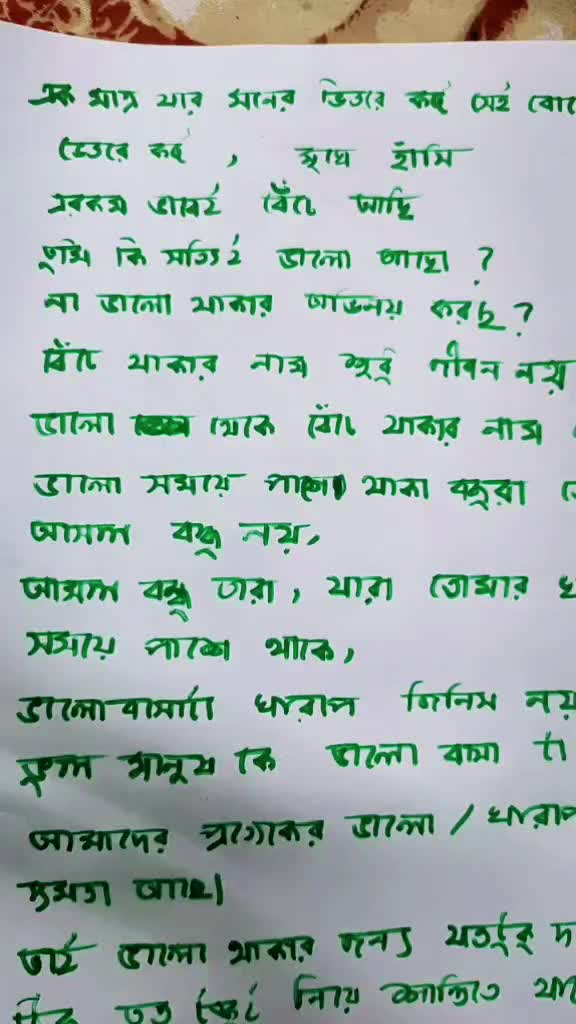 এক মাত্র যার মনের ভিতরে কষ্ট সেই বোঝে
ভেতরে কষ্ট , মুখে হাঁসি
এরকম ভাবেই বেঁচে আছি
তুমি কি সত্যিই ভালো আছো ?
না ভালো থাকার অভিনয় করছ ?
বেঁচে থাকার নাম শুধু জীবন নয়
ভালো থেকে বেঁচে থাকার নাম
ভালো সময়ে পাশে থাকা বন্ধুরা
আসল বন্ধু নয়,
আসল বন্ধু তারা, যারা তোমার
সময়ে পাশে থাকে,
ভালোবাসাটা খারাপ জিনিস নয়
ভুল মানুষ কে ভালো বাসা টা
আমাদের প্রত্যেকের ভালো / খারাপ
ক্ষমতা আছে।
তাই ভালো থাকার জন্য যতটুকু
ঠিক তত টুকুই নিয়ে শান্তিতে